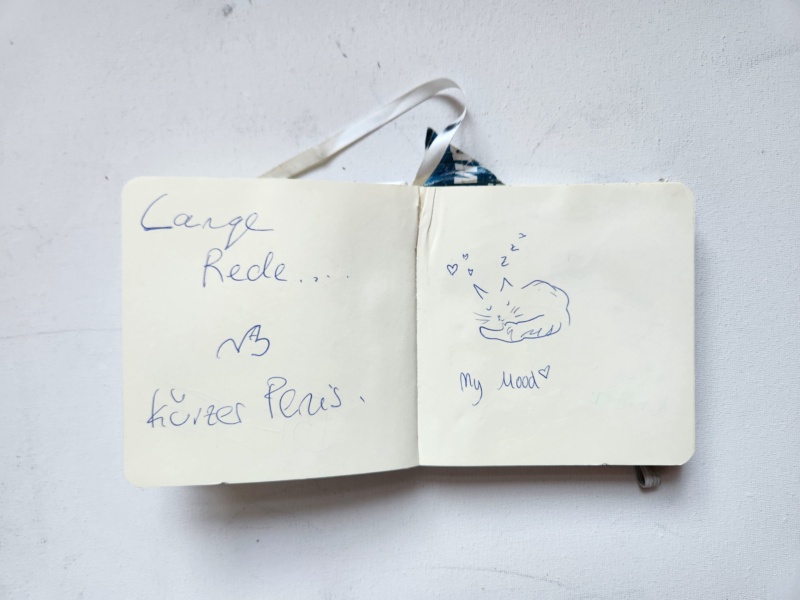 Lange
Rede....
kürzer Penis.
z z z
My Mood♡